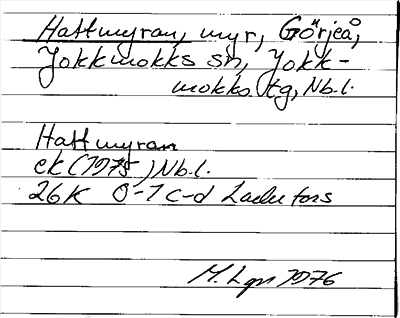 Hattmyran, myr, Görjeå,
Jokkmokks sn, Jokk-
mokks tg, Nb.l.
Hattmyran
ek (1975) Nb.l.
26K 0-1 c-d Ladufors
M. Lgn 1976